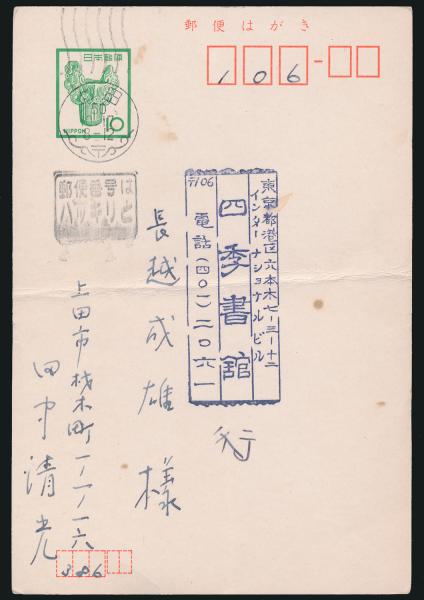 郵便はがき
106
日本郵便
NIPPON
10
上田
郵便番号は
ハッキリと
東京都港区六本木七-三-十二
インターナショナルビル
四季書館
電話(四〇一)二〇六一
〒106
行
長越成雄様
上田市材木町一ノ一ノ一六
田中清光
386